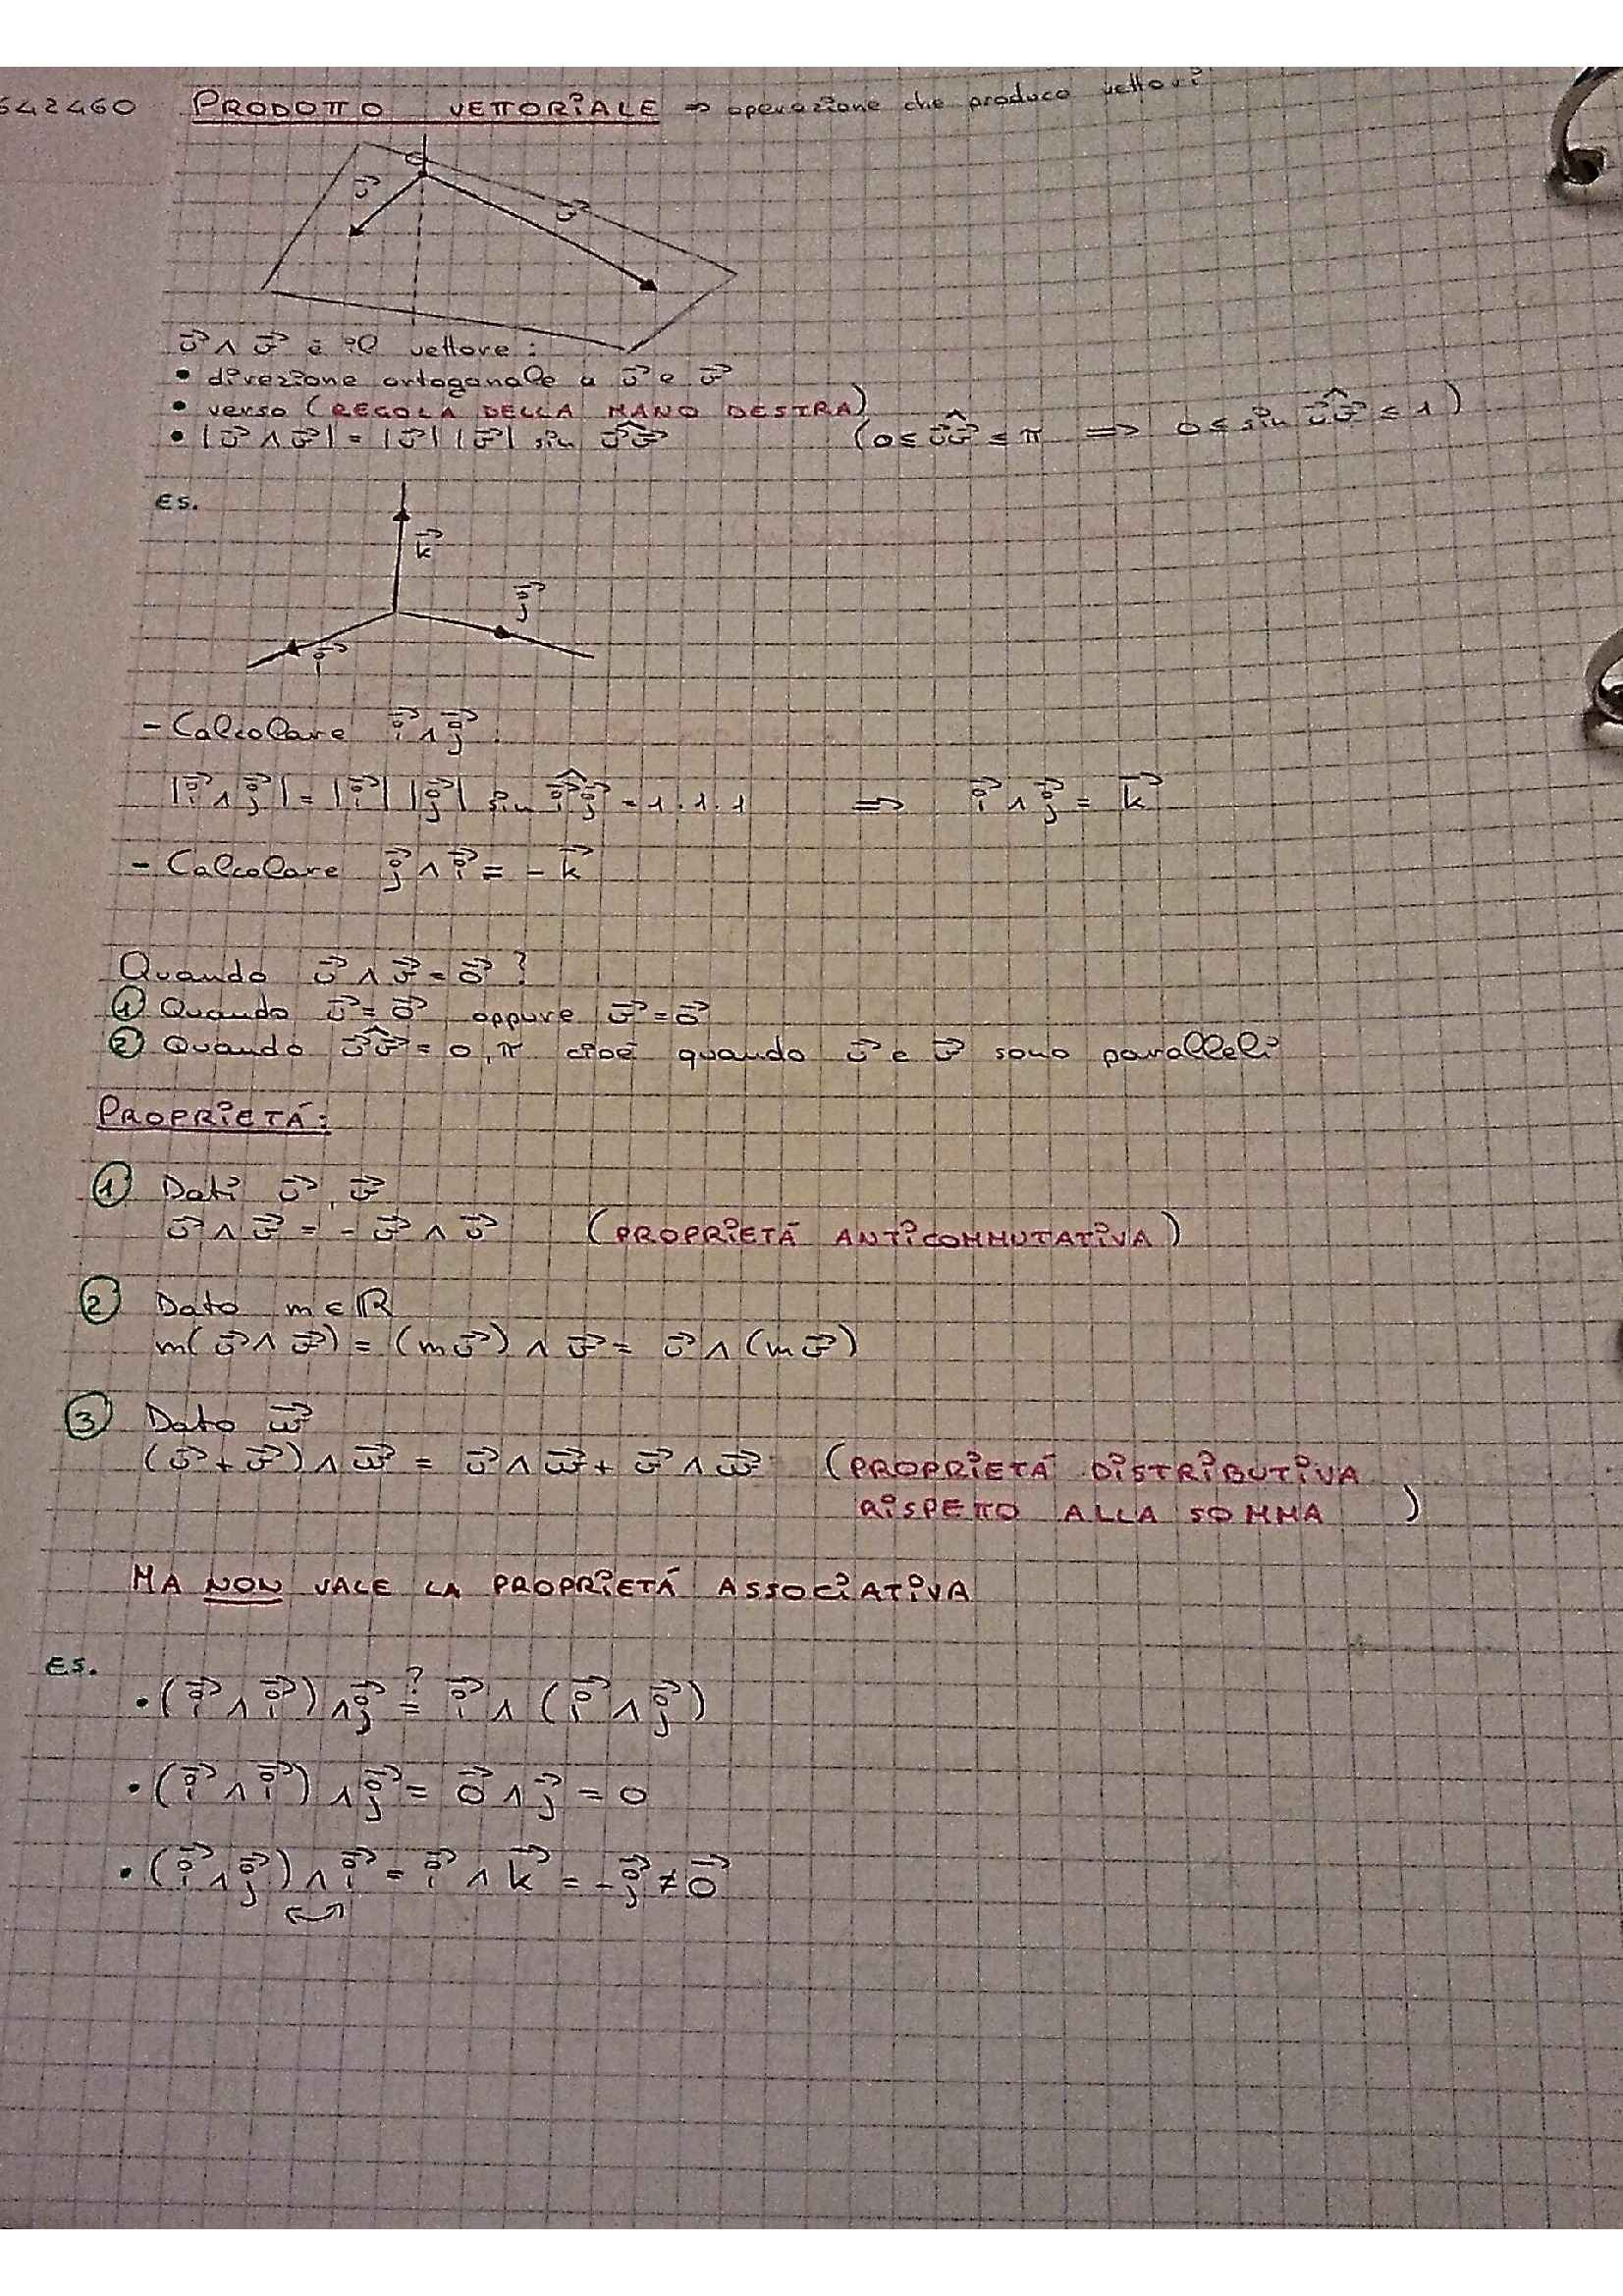 642460 PRODOTTO VETTORIALE ⇒ operazione che produce vettori
u⃗
v⃗
u⃗ ∧ v⃗ è il vettore:
• direzione ortogonale a u⃗ e v⃗
• verso (REGOLA DELLA MANO DESTRA)
• |u⃗ ∧ v⃗| = |u⃗| |v⃗| sin u⃗v⃗̂ (0 ≤ u⃗v⃗̂ ≤ π ⟹ 0 ≤ sin u⃗v⃗̂ ≤ 1)
ES.
k⃗
j⃗
i⃗
- Calcolare i⃗ ∧ j⃗.
|i⃗ ∧ j⃗| = |i⃗| |j⃗| sin i⃗j⃗̂ = 1·1·1 ⟹ i⃗ ∧ j⃗ = k⃗
- Calcolare j⃗ ∧ i⃗ = - k⃗
Quando u⃗ ∧ v⃗ = 0⃗ ?
① Quando u⃗ = 0⃗ oppure v⃗ = 0⃗
② Quando u⃗v⃗̂ = 0, π cioè quando u⃗ e v⃗ sono paralleli
PROPRIETÁ:
① Dati u⃗, v⃗
u⃗ ∧ v⃗ = - v⃗ ∧ u⃗ (PROPRIETÁ ANTICOMMUTATIVA)
② Dato m ∈ ℝ
m(u⃗ ∧ v⃗) = (m u⃗) ∧ v⃗ = u⃗ ∧ (m v⃗)
③ Dato w⃗
(u⃗ + v⃗) ∧ w⃗ = u⃗ ∧ w⃗ + v⃗ ∧ w⃗ (PROPRIETÁ DISTRIBUTIVA
RISPETTO ALLA SOMMA )
MA NON VALE LA PROPRIETÁ ASSOCIATIVA
ES.
• (i⃗ ∧ i⃗) ∧ j⃗ =? i⃗ ∧ (i⃗ ∧ j⃗)
• (i⃗ ∧ i⃗) ∧ j⃗ = 0⃗ ∧ j⃗ = 0
• (i⃗ ∧ j⃗) ∧ i⃗ = i⃗ ∧ k⃗ = - j⃗ ≠ 0⃗